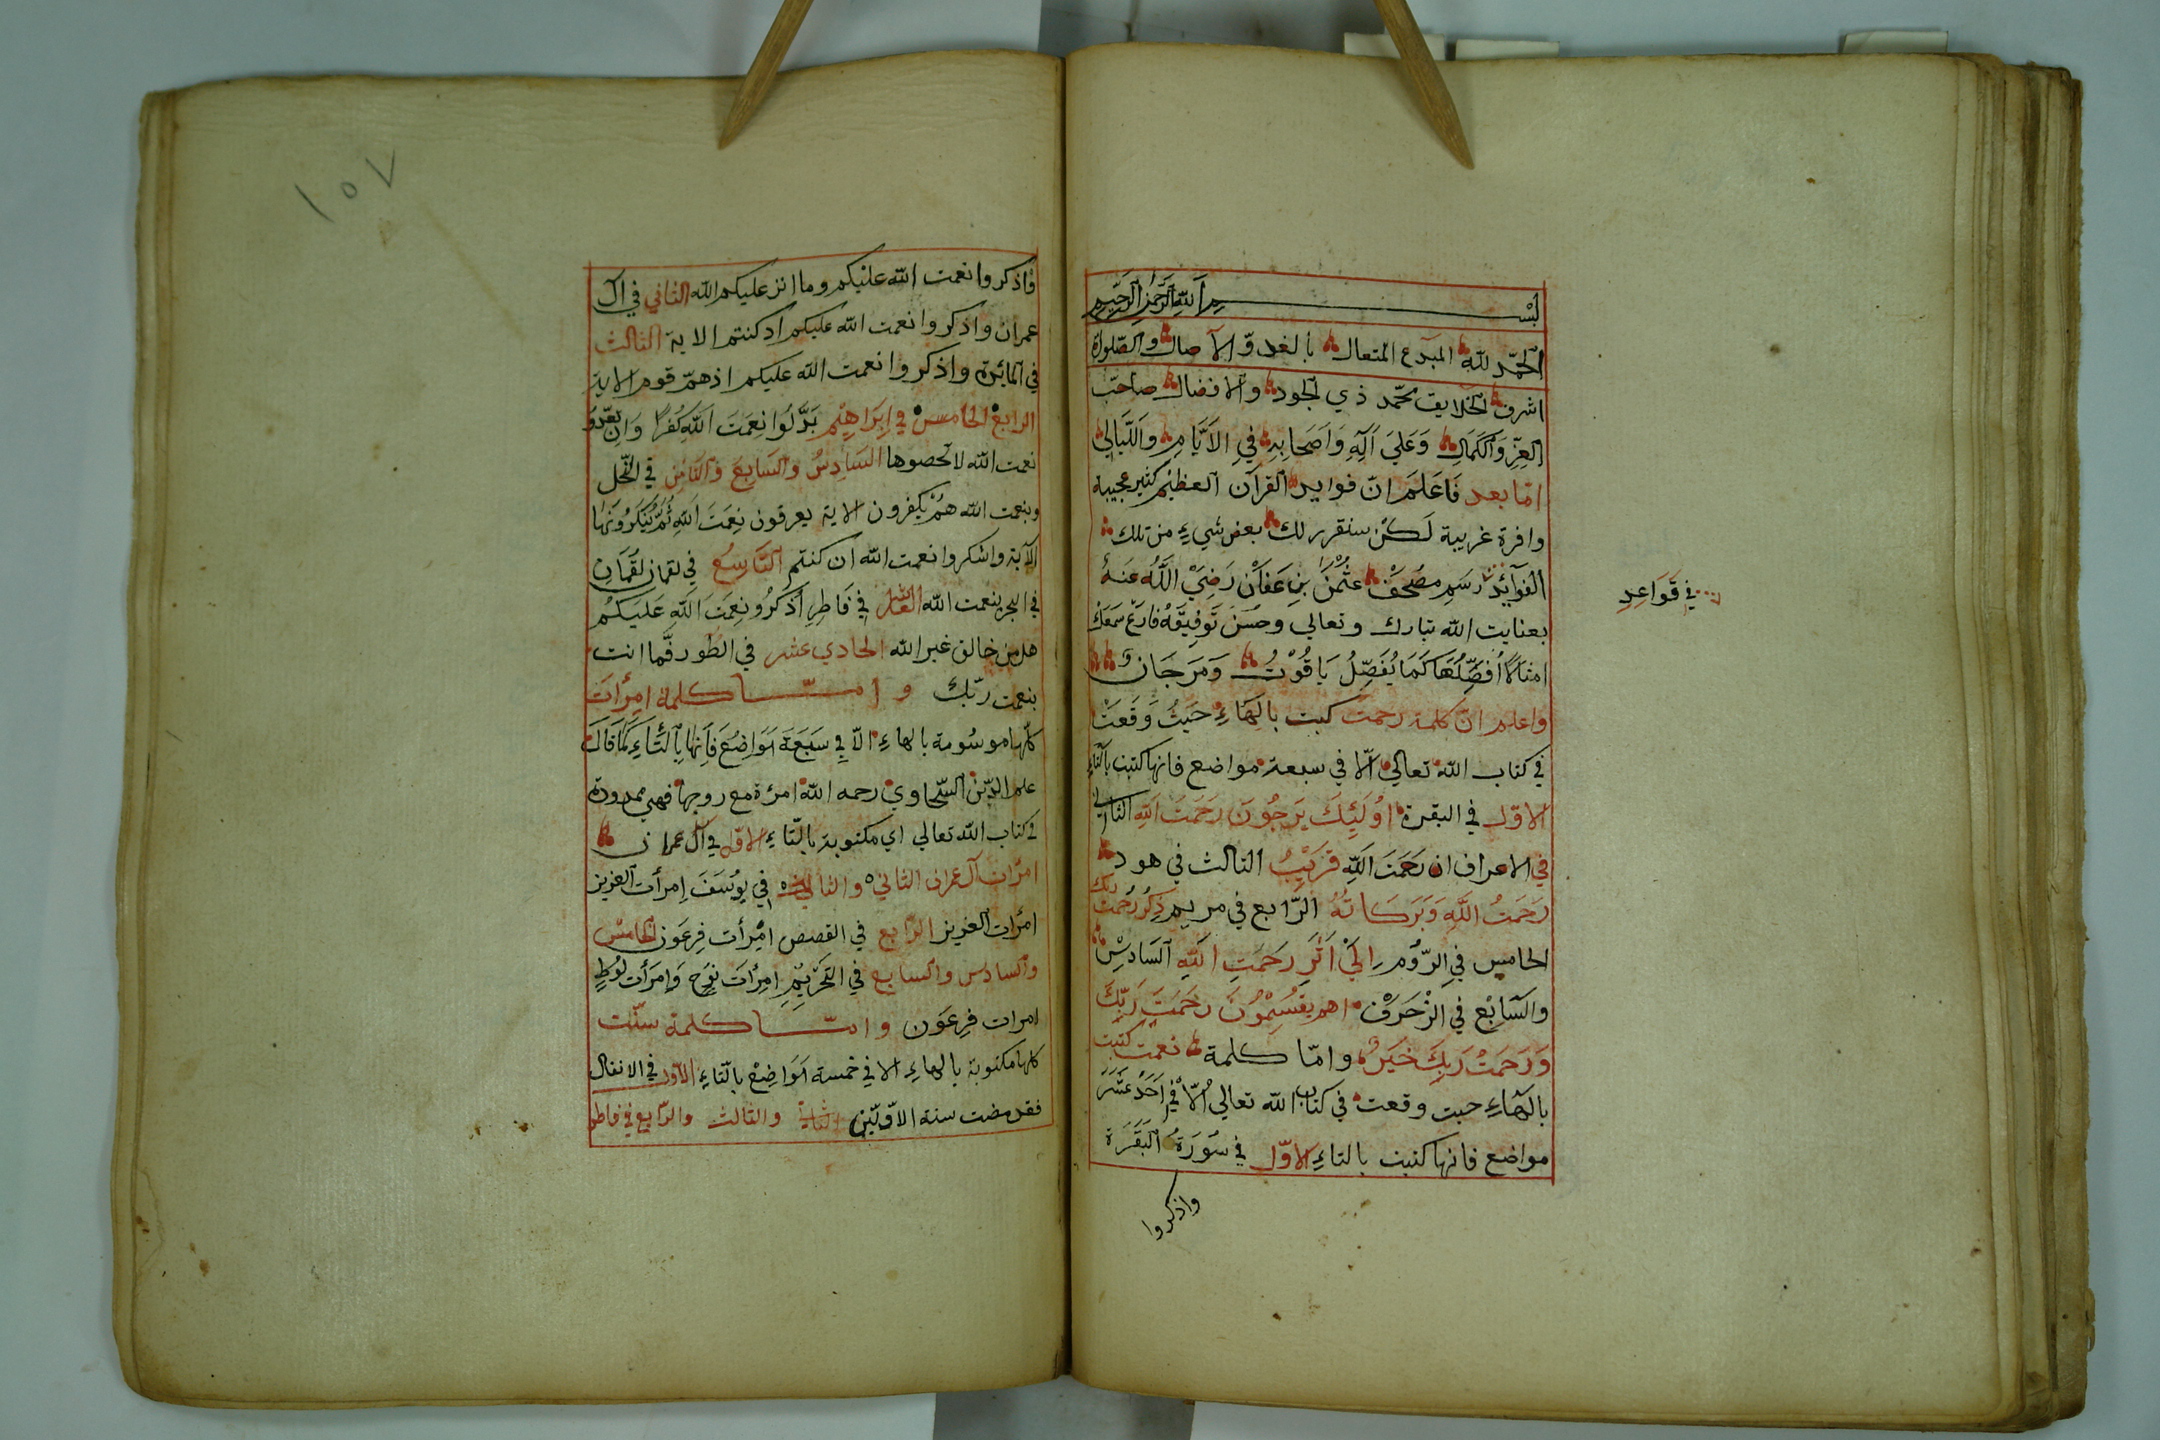 بسم الله الرحمن الرحيم
الحمد لله المبدع المتعال بالغدو والآصال والصلوة
اشرف الخلايق محمد ذي الجود والافضال صاحب
العز والكمال وعلى آله واصحابه في الايام والليالي
اما بعد فاعلم ان فوايد القرآن العظيم كثير عجيبة
وافرة غريبة لكن سنقرر لك بعض شيء من تلك
الفوائد رسم مصحف عثمن بن عفان رضي الله عنه
في قواعد
بعنايت الله تبارك وتعالى وحسن توفيقه فارع سمعك
امثالا افصلها كما يفصل ياقوت ومرجان
واعلم ان كلمة رحمت كبت بالهاء حيث وقعت
في كتاب الله تعالى الا في سبعة مواضع فانها كتبت بالتاء
الاول في البقرة اولئك يرجون رحمت الله الثاني
في الاعراف ان رحمت الله قريب الثالث في هود
رحمت الله وبركاته الرابع في مريم ذكر رحمت ربك
الخامس في الروم الى اثر رحمت الله السادس
والسابع في الزخرف اهم يقسمون رحمت ربك
ورحمت ربك خير واما كلمة نعمت كتبت
بالهاء حيت وقعت في كتاب الله تعالى الا في احد عشر
مواضع فانها كتبت بالتاء الاول في سورة البقرة
واذكروا
١٥٧
واذكروا نعمت الله عليكم وما انز عليكم الله الثاني في ال
عمران واذكروا نعمت الله عليكم اذ كنتم الاية الثالث
في المائدة واذكروا نعمت الله عليكم اذ هم قوم الاية
الرابع الخامس في ابراهيم بدلوا نعمت الله كفرا وان تعدوا
نعمت الله لا تحصوها السادس والسابع والثامن في النحل
وبنعمت الله هم يكفرون الاية يعرفون نعمت الله ثم ينكرونها
الآية واشكروا نعمت الله ان كنتم التاسع في لقمان لقمان
في البحر بنعمت الله العاشر في فاطر اذكرو نعمت الله عليكم
هل من خالق غير الله الحادي عشر في الطور فما انت
بنعمت ربك واما كلمة امرأت
كلها موسومة بالهاء الا في سبعة مواضع فانها بالتاء كما قال
علم الدين السخاوي رحمه الله امرءة مع زوجها فهي ممدودة
في كتاب الله تعالى اي مكتوبة بالتاء الاول في آل عمران
امرأت آل عمران الثاني والثالث في يوسف امرأت العزيز
امرأت العزيز الرابع في القصص امرأت فرعون الخامس
والسادس والسابع في التحريم امرأت نوح وامرأت لوط
امرات فرعون واما كلمة سنت
كلها مكتوبة بالهاء الا في خمسة مواضع بالتاء الاول في الانفال
فقد مضت سنة الاولين الثاني والثالث والرابع في فاطر